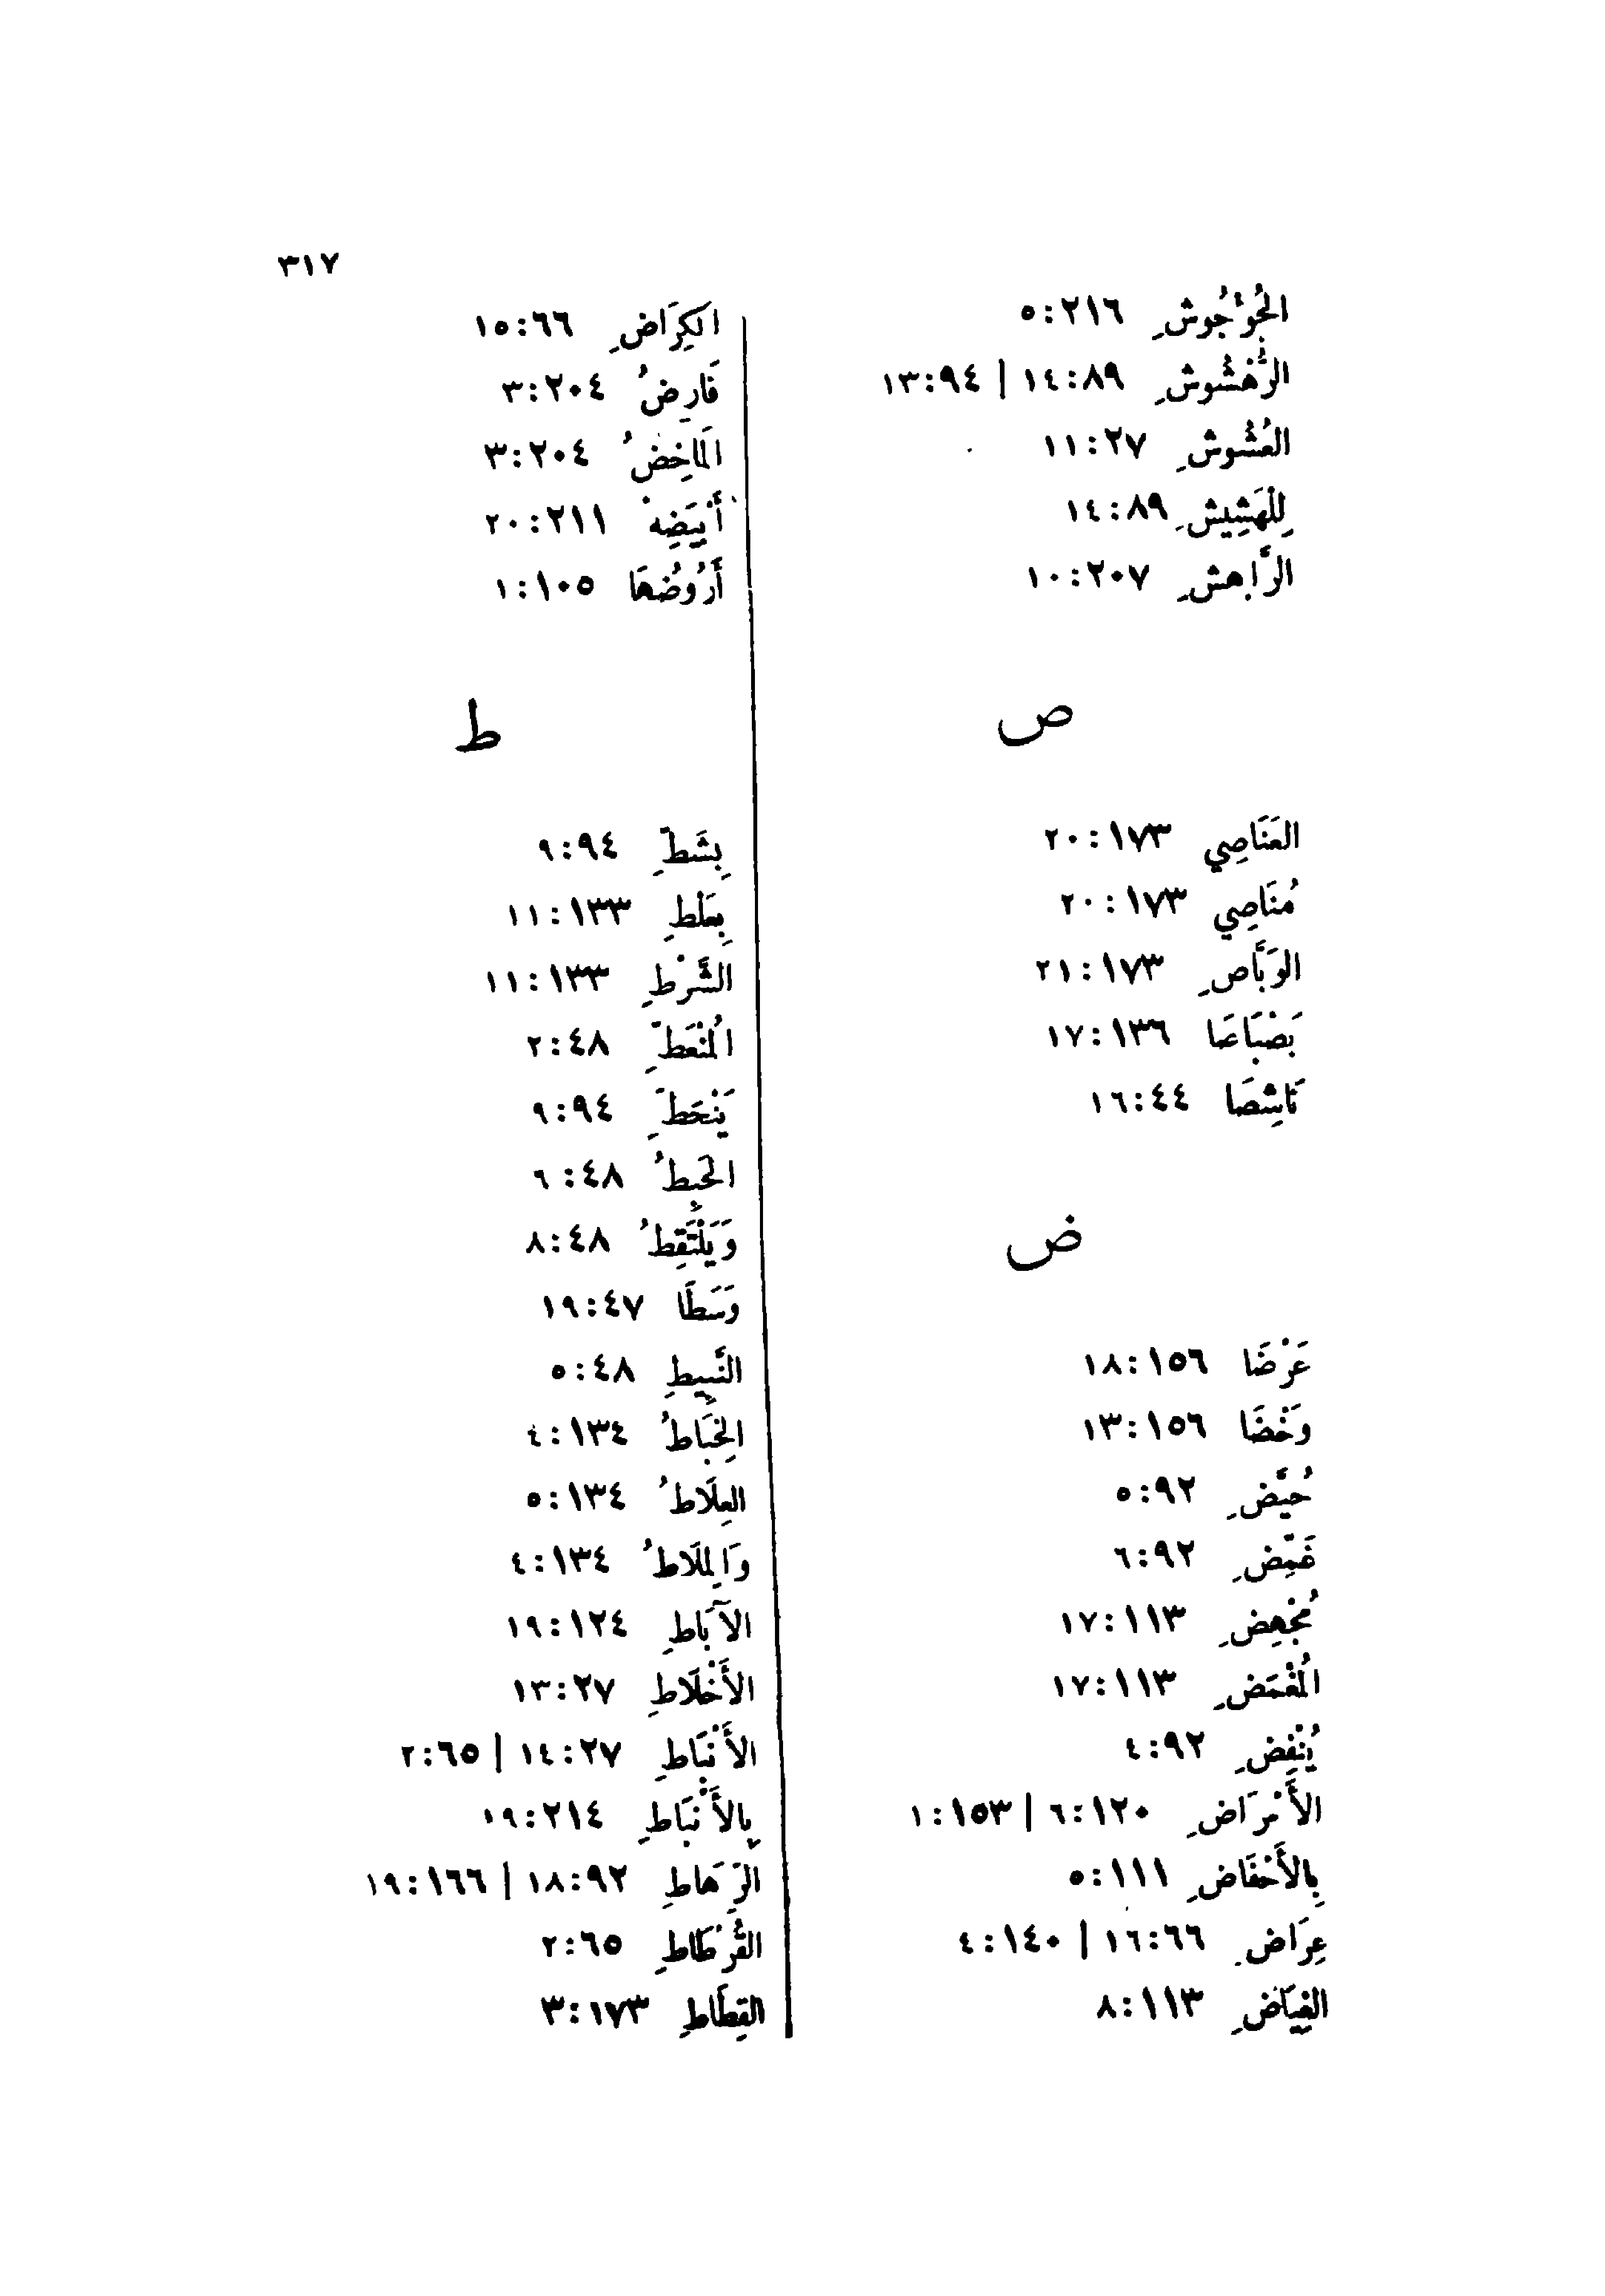 ٣١٧
الجُؤْجُوشِ ٢١٦:٥
الرُّهْشُوشِ ٨٩:١٤ | ٩٤:١٣
العُشُوشِ ٢٧:١١
لِلْهَشِيشِ ٨٩:١٤
الرَّاهِشِ ٢٠٧:١٠
ص
العَنَاصِي ١٧٣:٢٠
مُنَاصِي ١٧٣:٢٠
الوَبَّاصِ ١٧٣:٢١
بَصْبَاعَا ١٣٦:١٧
نَاشِصَا ٤٤:١٦
ض
عَرْضَا ١٥٦:١٨
وَخْضَا ١٥٦:١٣
حُيَّضِ ٩٢:٥
غَمِّضِ ٩٢:٦
مُجْهِضِ ١١٣:١٧
المُغْمَضِ ١١٣:١٧
يُنْفِضِ ٩٢:٤
الأَمْرَاضِ ١٢٠:٦ | ١٥٣:١
بِالأَحْفَاضِ ١١١:٥
عِرَاضِ ٦٦:١٦ | ١٤٠:٤
الغِيَاضِ ١١٣:٨
الكِرَاضِ ٦٦:١٥
فَارِضُ ٢٠٤:٣
المَاخِضُ ٢٠٤:٣
أَبْيَضِهْ ٢١١:٢٠
أَرُوُضُهَا ١٠٥:١
ط
بِشَطِّ ٩٤:٩
بِعَلْطِ ١٣٣:١١
الشَّرْطِ ١٣٣:١١
المُنْعَطِّ ٤٨:٢
يَنْحَطِّ ٩٤:٩
الحَبِطُ ٤٨:٦
وَيَلْتَقِطُ ٤٨:٨
وَسَطَا ٤٧:١٩
النَّبِيطِ ٤٨:٥
الخِبَاطُ ١٣٤:٤
العِلَاطُ ١٣٤:٥
وَالمِلَاطُ ١٣٤:٤
الآبَاطِ ١٢٤:١٩
الأَخْلَاطِ ٢٧:١٣
الأَنْبَاطِ ٢٧:١٤ | ٦٥:٢
بِالأَنْبَاطِ ٢١٤:١٩
الرَّهَاطِ ٩٢:١٨ | ١٦٦:١٩
القُرْطَاطِ ٦٥:٢
القِطَاطِ ١٧٣:٣